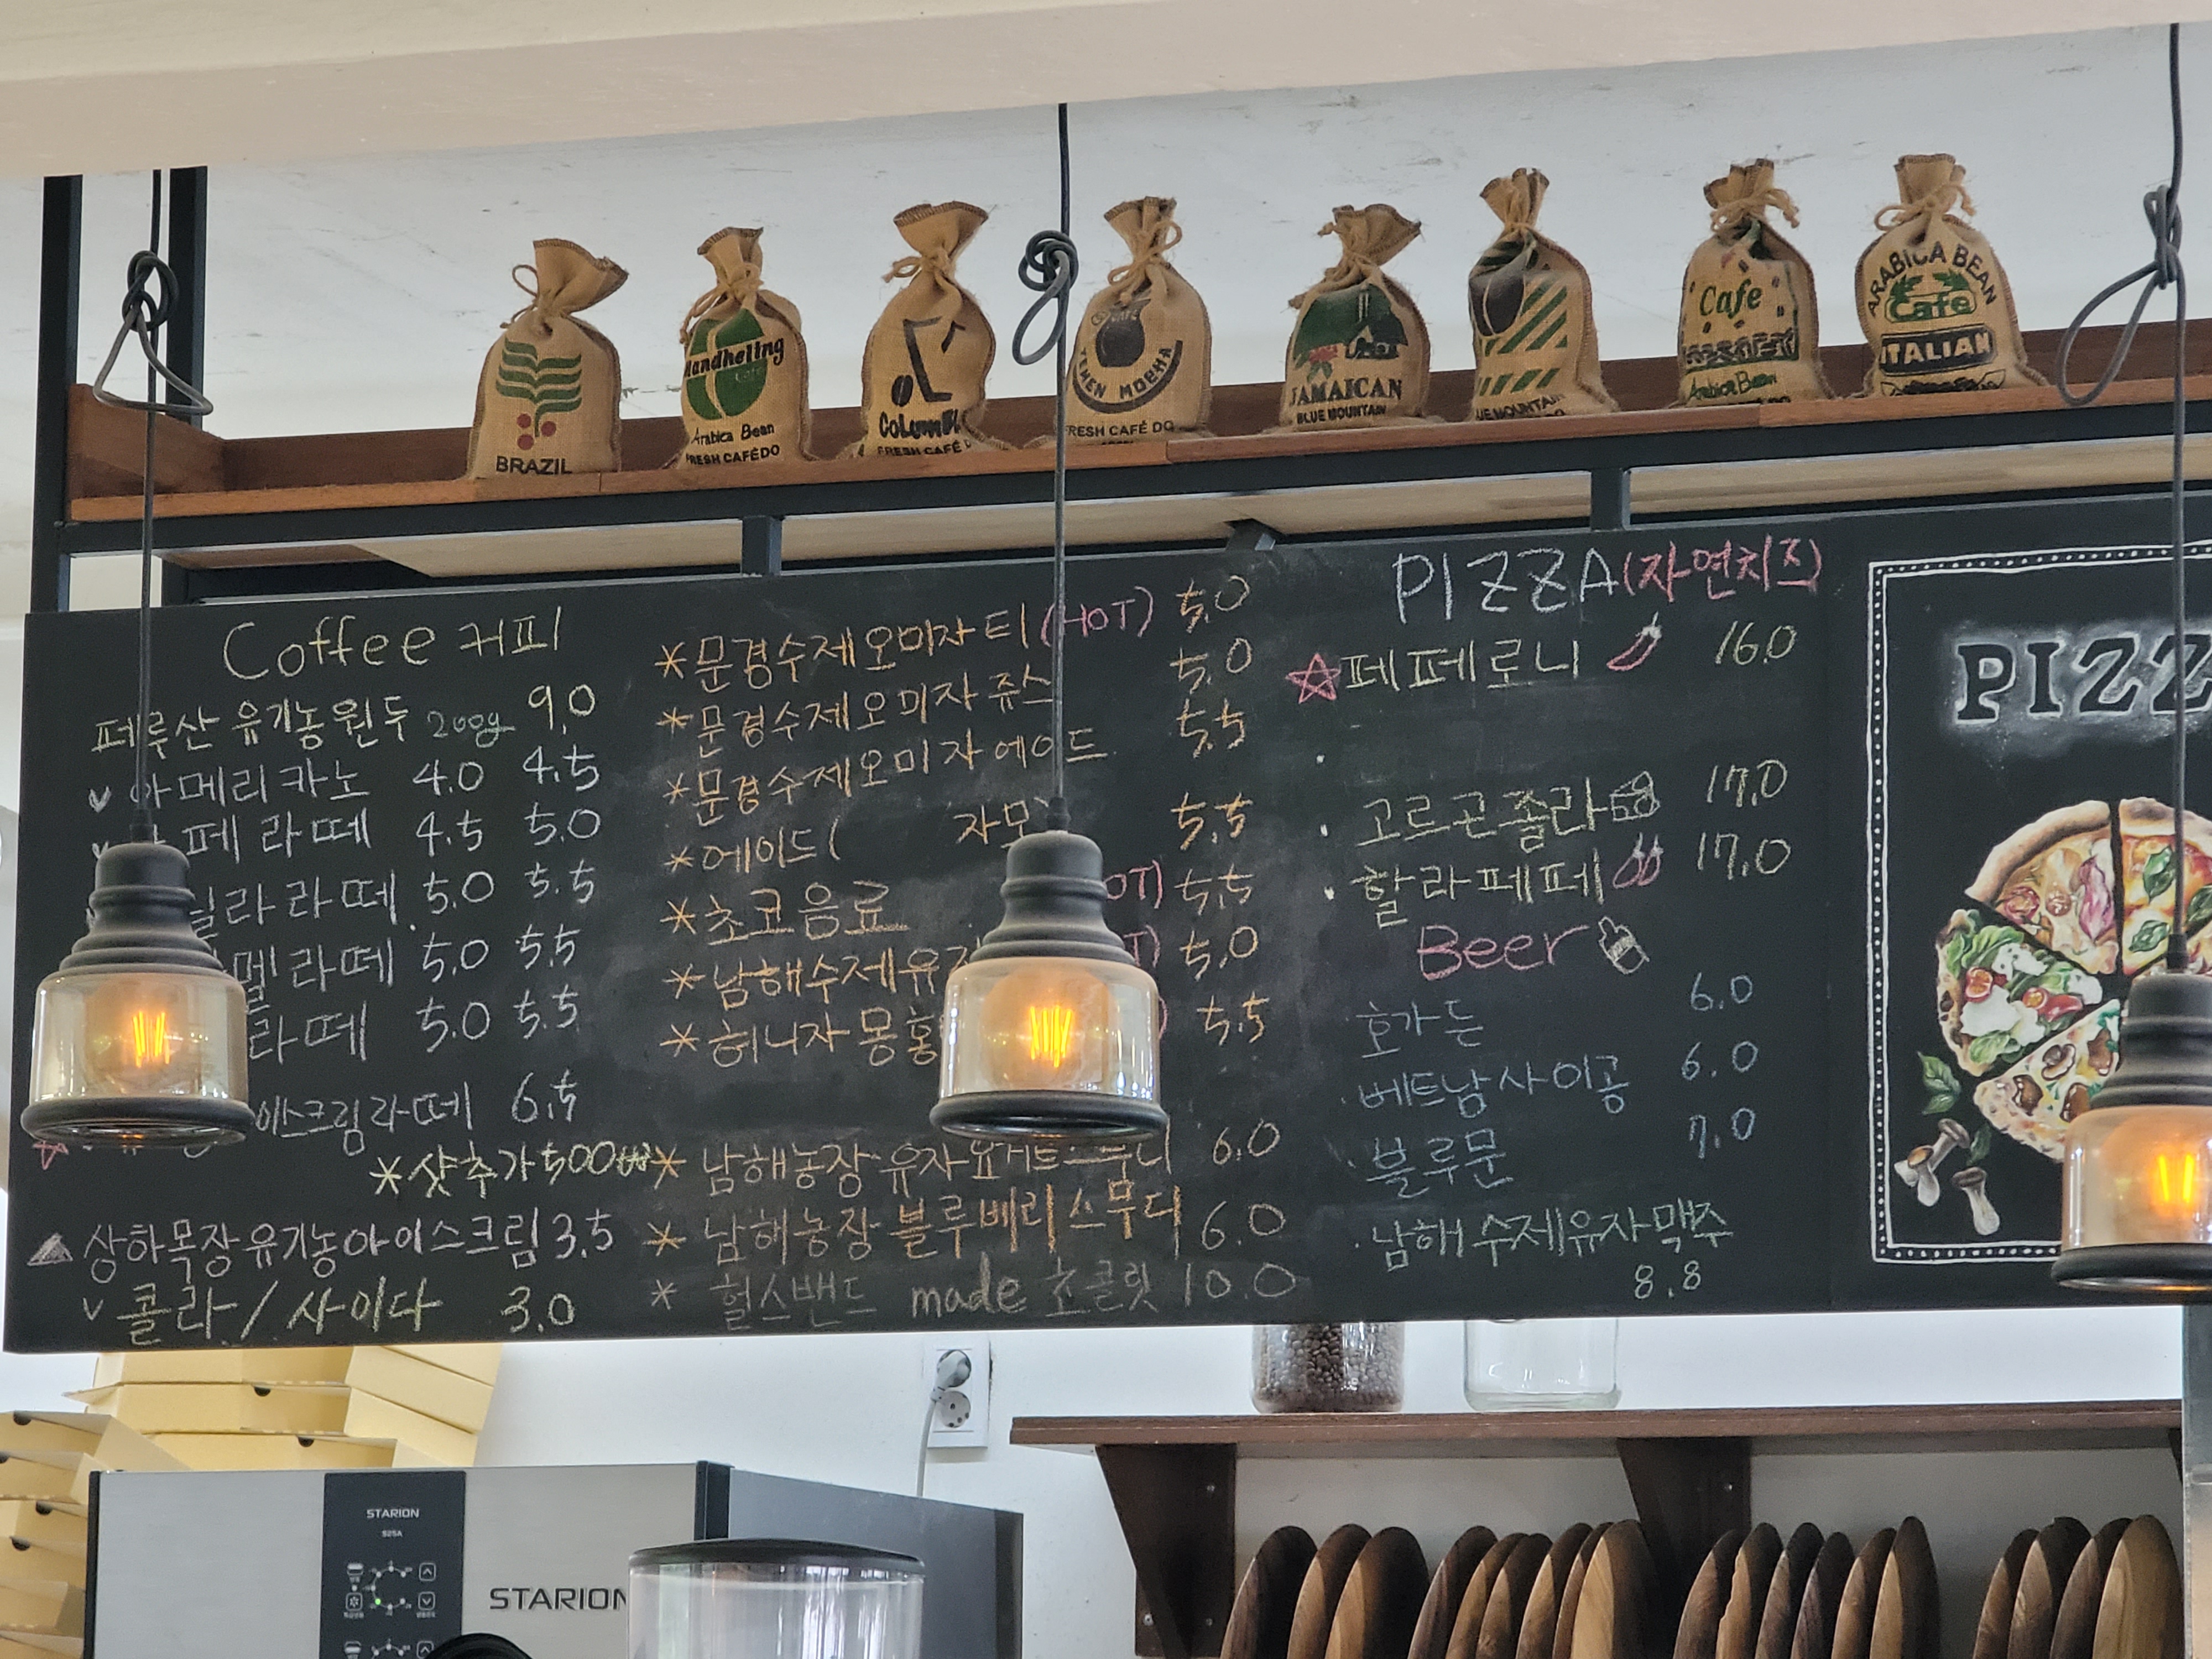 BRAZIL
Mandheling
Arabica Bean
FRESH CAFÉ DO
FRESH CAFÉ
YEMEN MOCHA
FRESH CAFÉ DO
JAMAICAN
BLUE MOUNTAIN
Cafe
Arabica Bean
ARABICA BEAN
Cafe
ITALIAN
Coffee 커피
페루산 유기농원두 200g 9.0
아메리카노 4.0 4.5
페라떼 4.5 5.0
닐라라떼 5.0 5.5
멜라떼 5.0 5.5
라떼 5.0 5.5
이스크림라떼 6.5
*샷추가 500₩
상하목장유기농아이스크림 3.5
콜라/사이다 3.0
*문경수제오미자티 (HOT) 5.0
*문경수제오미자쥬스 5.0
*문경수제오미자에이드 5.5
*에이드( 자몽 5.5
*초코음료 OT) 5.5
*남해수제유자 T) 5.0
*허니자몽홍 ) 5.5
*남해농장유자요거트스무디 6.0
*남해농장블루베리스무디 6.0
*헐스밴드 made 초콜릿 10.0
PIZZA(자연치즈)
페페로니 16.0
고르곤졸라 17.0
할라페페 17.0
Beer
호가든 6.0
베트남사이공 6.0
블루문 7.0
남해수제유자맥주
8.8
PIZZ
STARION
S25A
STARION